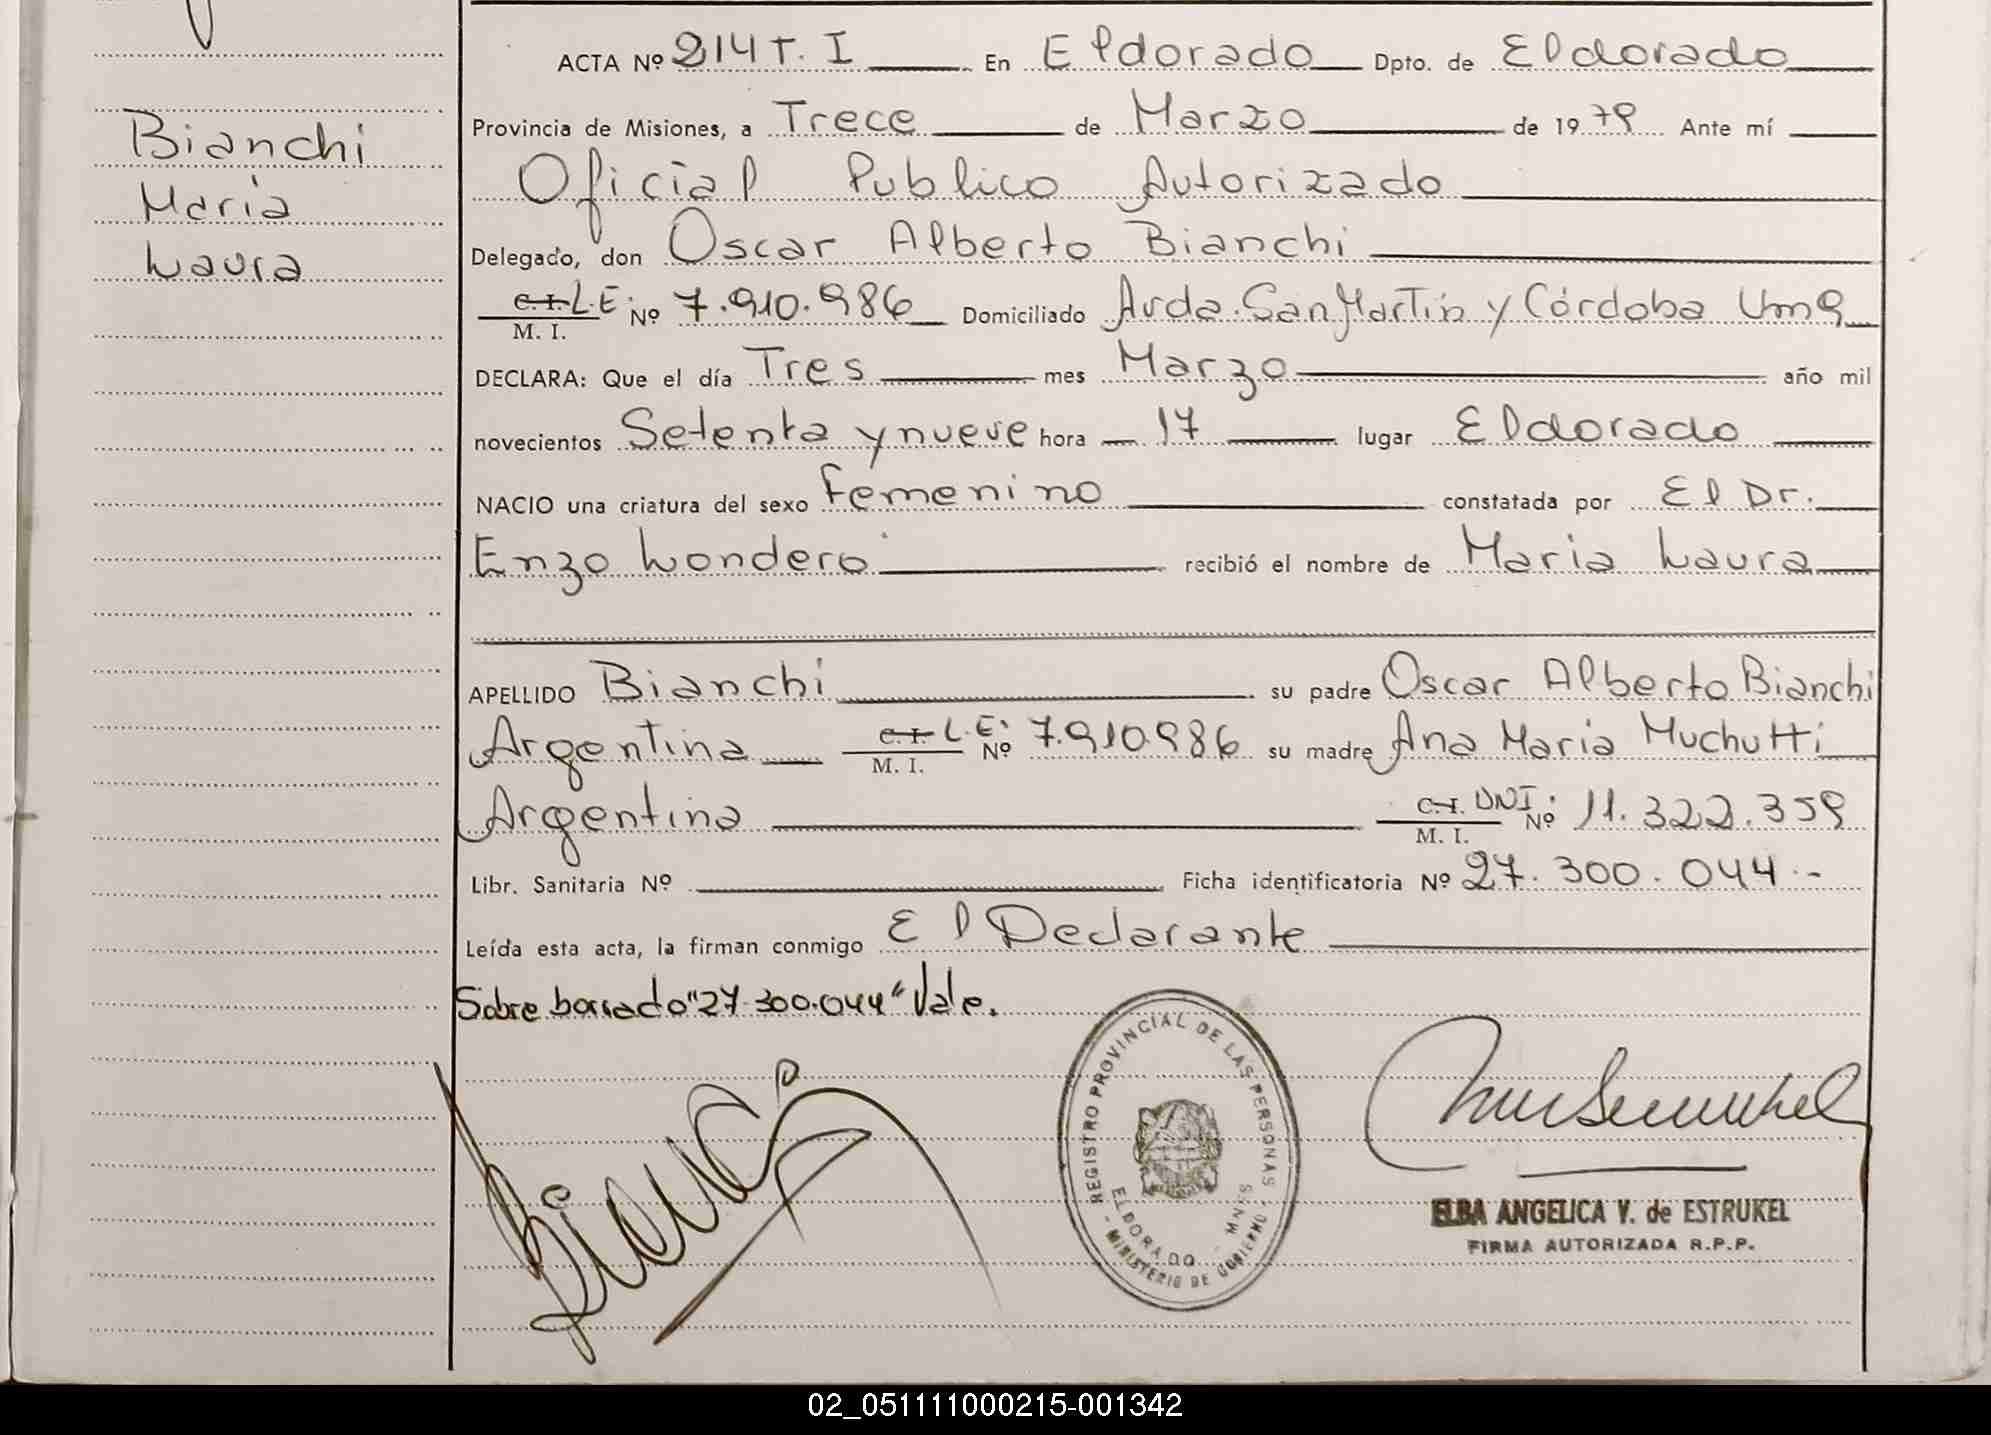 ACTA Nº 214 T. I En Eldorado Dpto. de Eldorado
Provincia de Misiones, a Trece de Marzo de 1979 Ante mí
Oficial Publico Autorizado
Delegado, don Oscar Alberto Bianchi
C.I. L.E. M. I. Nº 7.910.986 Domiciliado Avda. San Martín y Córdoba
DECLARA: Que el día Tres mes Marzo año mil
novecientos Setenta y nueve hora 17 lugar Eldorado
NACIO una criatura del sexo Femenino constatada por El Dr.
Enzo Londero recibió el nombre de Maria Laura
APELLIDO Bianchi su padre Oscar Alberto Bianchi
Argentina C.I. L.E. M. I. Nº 7.910.986 su madre Ana Maria Muchutti
Argentina C.I. DNI. M. I. Nº 11.322.359
Libr. Sanitaria Nº Ficha identificatoria Nº 27.300.044.-
Leída esta acta, la firman conmigo El Declarante
Sobre borrado "27.300.044" Vale.
Bianchi
María
Laura
Bianchi
REGISTRO PROVINCIAL DE LAS PERSONAS
ELDORADO - MNES
- MINISTERIO DE GOBIERNO -
ELBA ANGELICA V. de ESTRUKEL
FIRMA AUTORIZADA R.P.P.
02_051111000215-001342